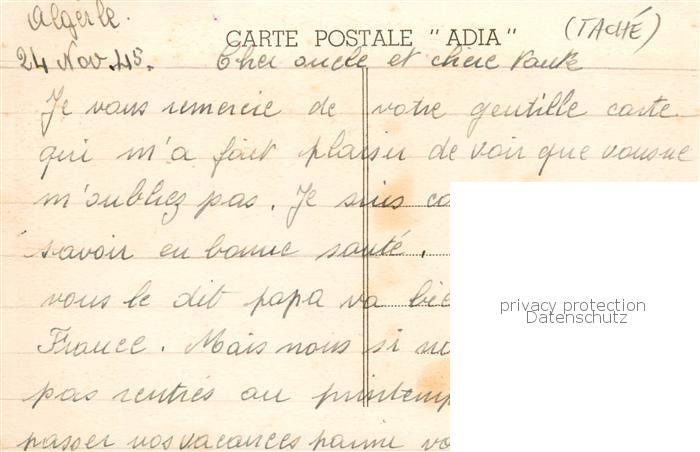 Algérie. (TACHÉ)
CARTE POSTALE "ADIA"
24 Nov. 45. Cher oncle et chère tante
Je vous remercie de votre gentille carte
qui m'a fait plaisir de voir que vous ne
m'oubliez pas. Je suis
savoir en bonne santé.
vous le dit papa va
France. Mais nous si
pas rentrés au printemp
passer vos vacances parmi
privacy protection
Datenschutz